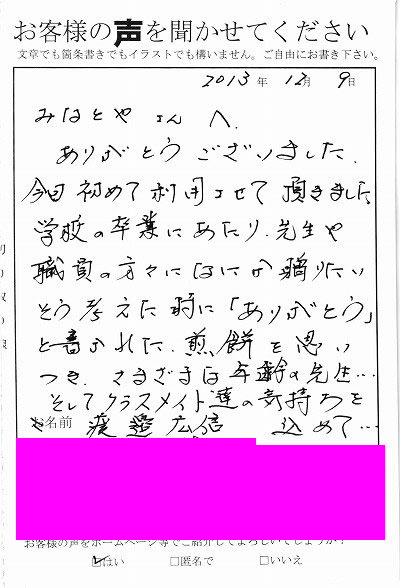 お客様の声を聞かせてください
文章でも箇条書きでもイラストでも構いません。ご自由にお書き下さい。
2013年 12月 9日
みなとや さんへ.
ありがとうございました.
今回初めて利用させて頂きました
学校の卒業にあたり.先生や
職員の方々になにか贈りたい
そう考えた時に「ありがとう」
と書かれた.煎餅を思い
つき.さまざまな年齢の先生…
そしてクラスメイト達の気持ちを
込めて…
お名前 渡邉広信
お客様の声をホームページ等でご紹介してよろしいでしょうか?
☑はい □匿名で □いいえ